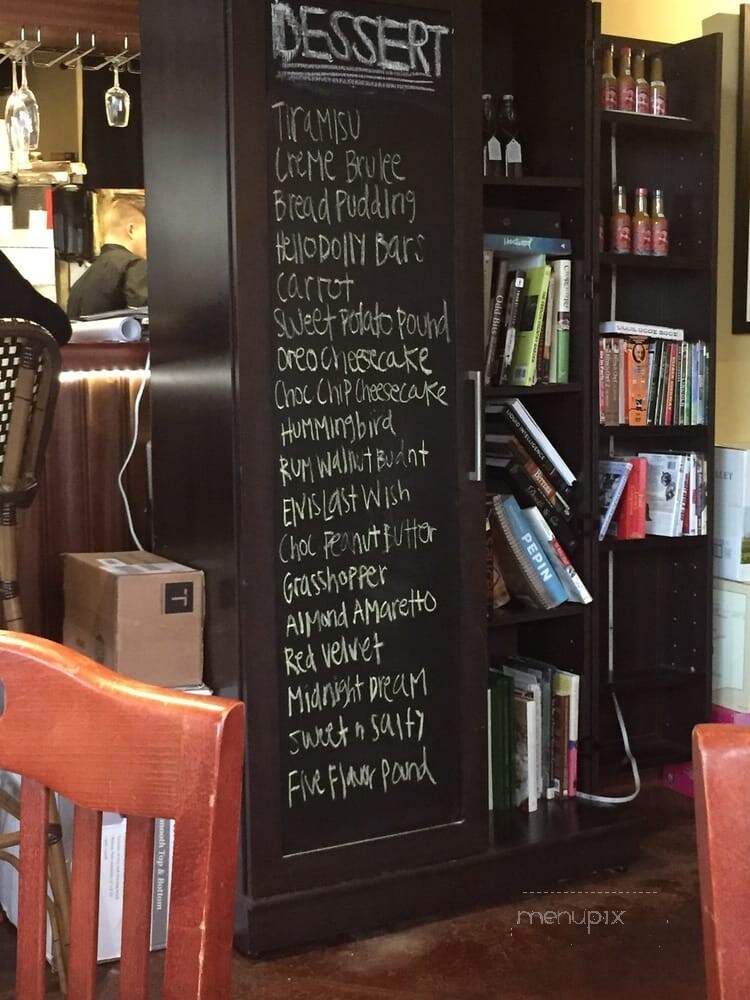 DESSERT
Tiramisu
Creme Brulee
Bread Pudding
Hello Dolly Bars
Carrot
Sweet Potato Pound
Oreo Cheesecake
Choc Chip Cheesecake
Hummingbird
Rum Walnut Bundt
Elvis Last Wish
Choc Peanut Butter
Grasshopper
Almond Amaretto
Red Velvet
Midnight Dream
Sweet n Salty
Five Flavor Pound
PEPIN
T
Smooth Top & Bottom
menupix